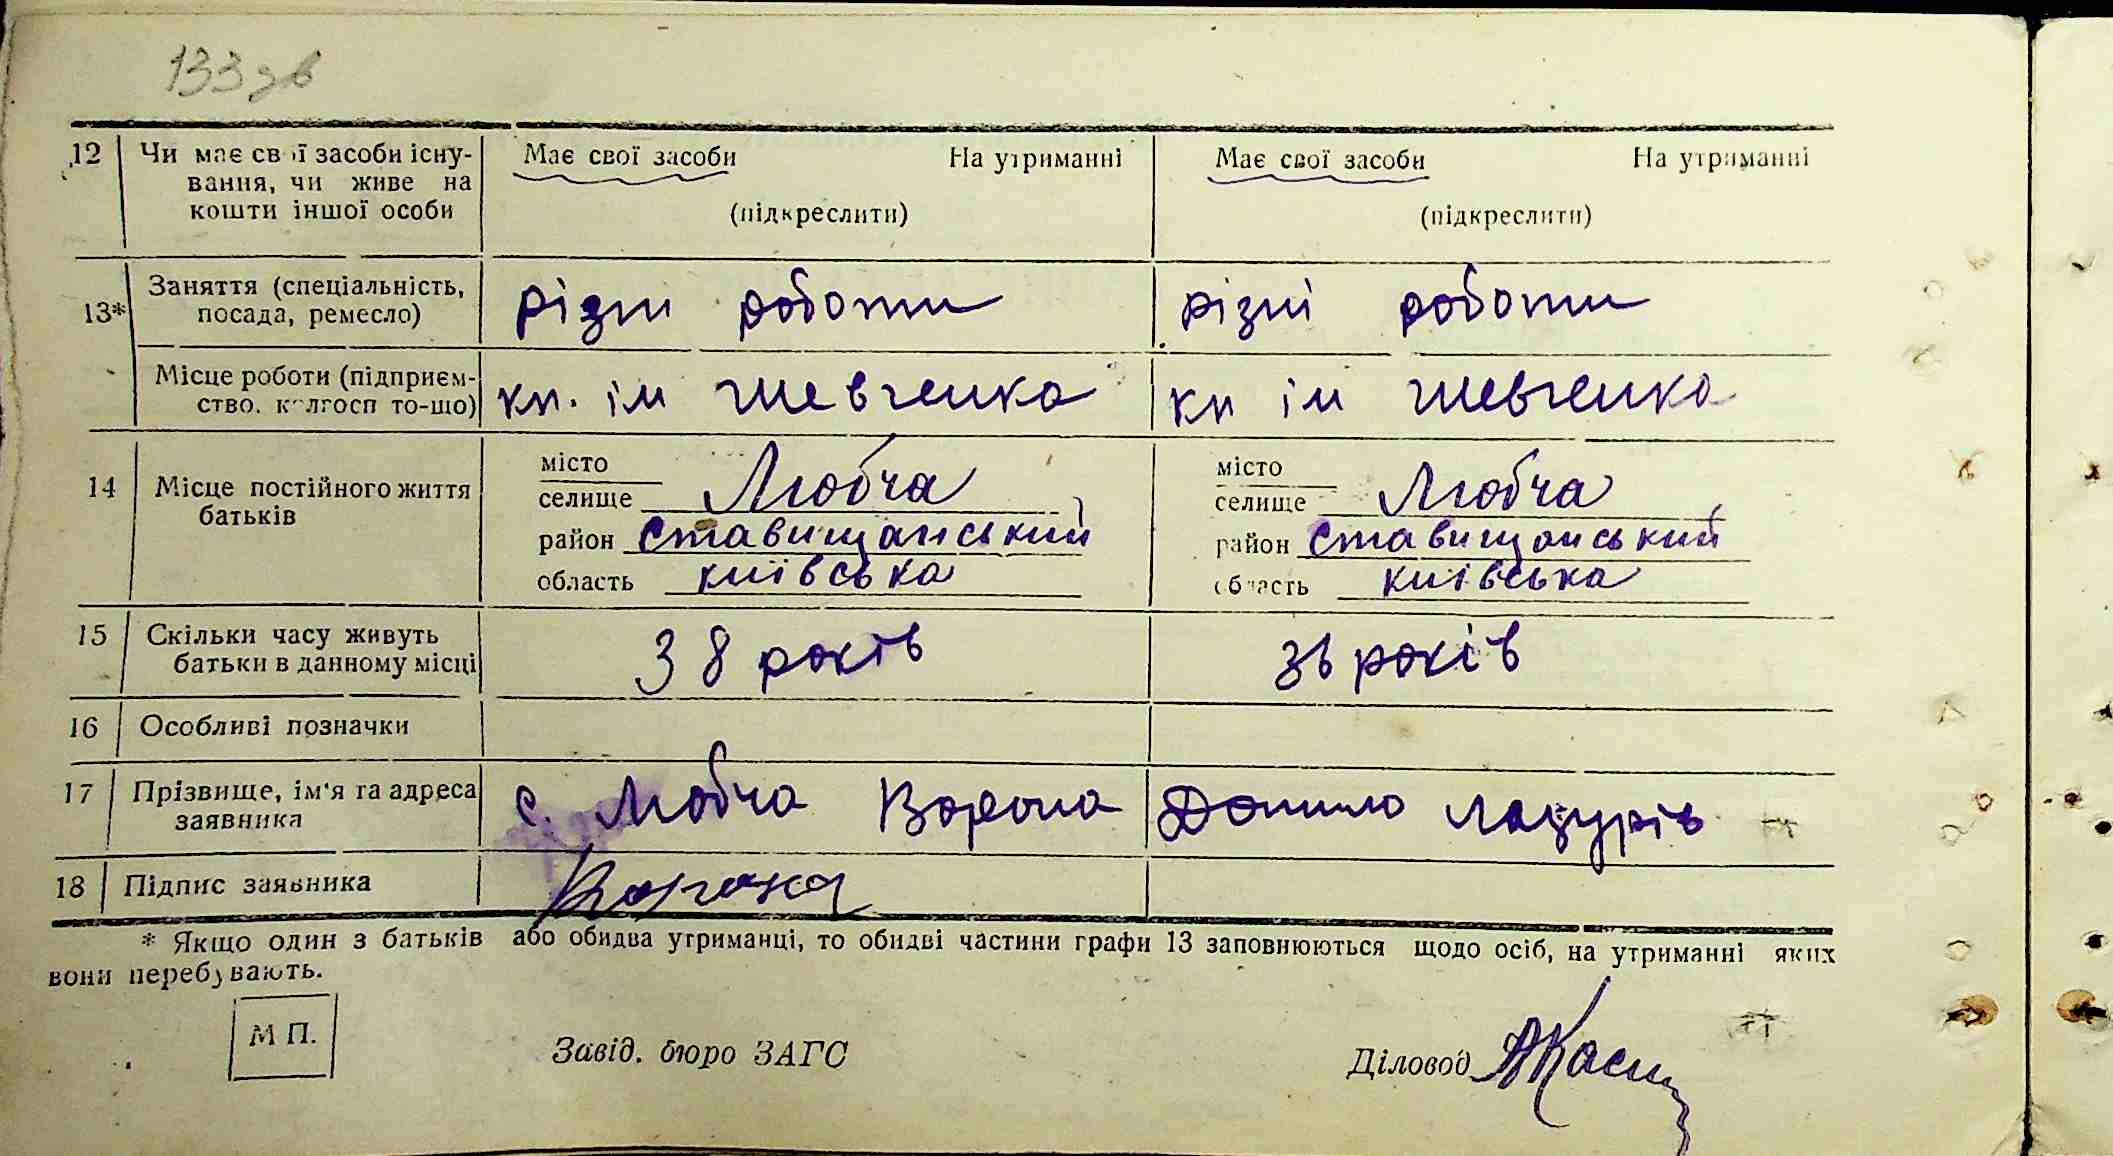 133 зв
12 Чи має свої засоби існу- Має свої засоби На утриманні Має свої засоби На утриманні
вання, чи живе на
кошти іншої особи (підкреслити) (підкреслити)
13* Заняття (спеціальність, різні роботи різні роботи
посада, ремесло)
Місце роботи (підприєм- кп. ім Шевченка кп ім Шевченка
ство, колгосп то-що)
14 Місце постійного життя місто місто
батьків селище Любча селище Любча
район Ставищанський район Ставищанський
область київська область київська
15 Скільки часу живуть 38 років 36 років
батьки в данному місці
16 Особливі позначки
17 Прізвище, ім'я та адреса с. Любча Ворона Данило Лазурів
заявника
18 Підпис заявника Ворона
* Якщо один з батьків або обидва утриманці, то обидві частини графи 13 заповнюються щодо осіб, на утриманні яких
вони перебувають.
М П.
Завід. бюро ЗАГС Діловод